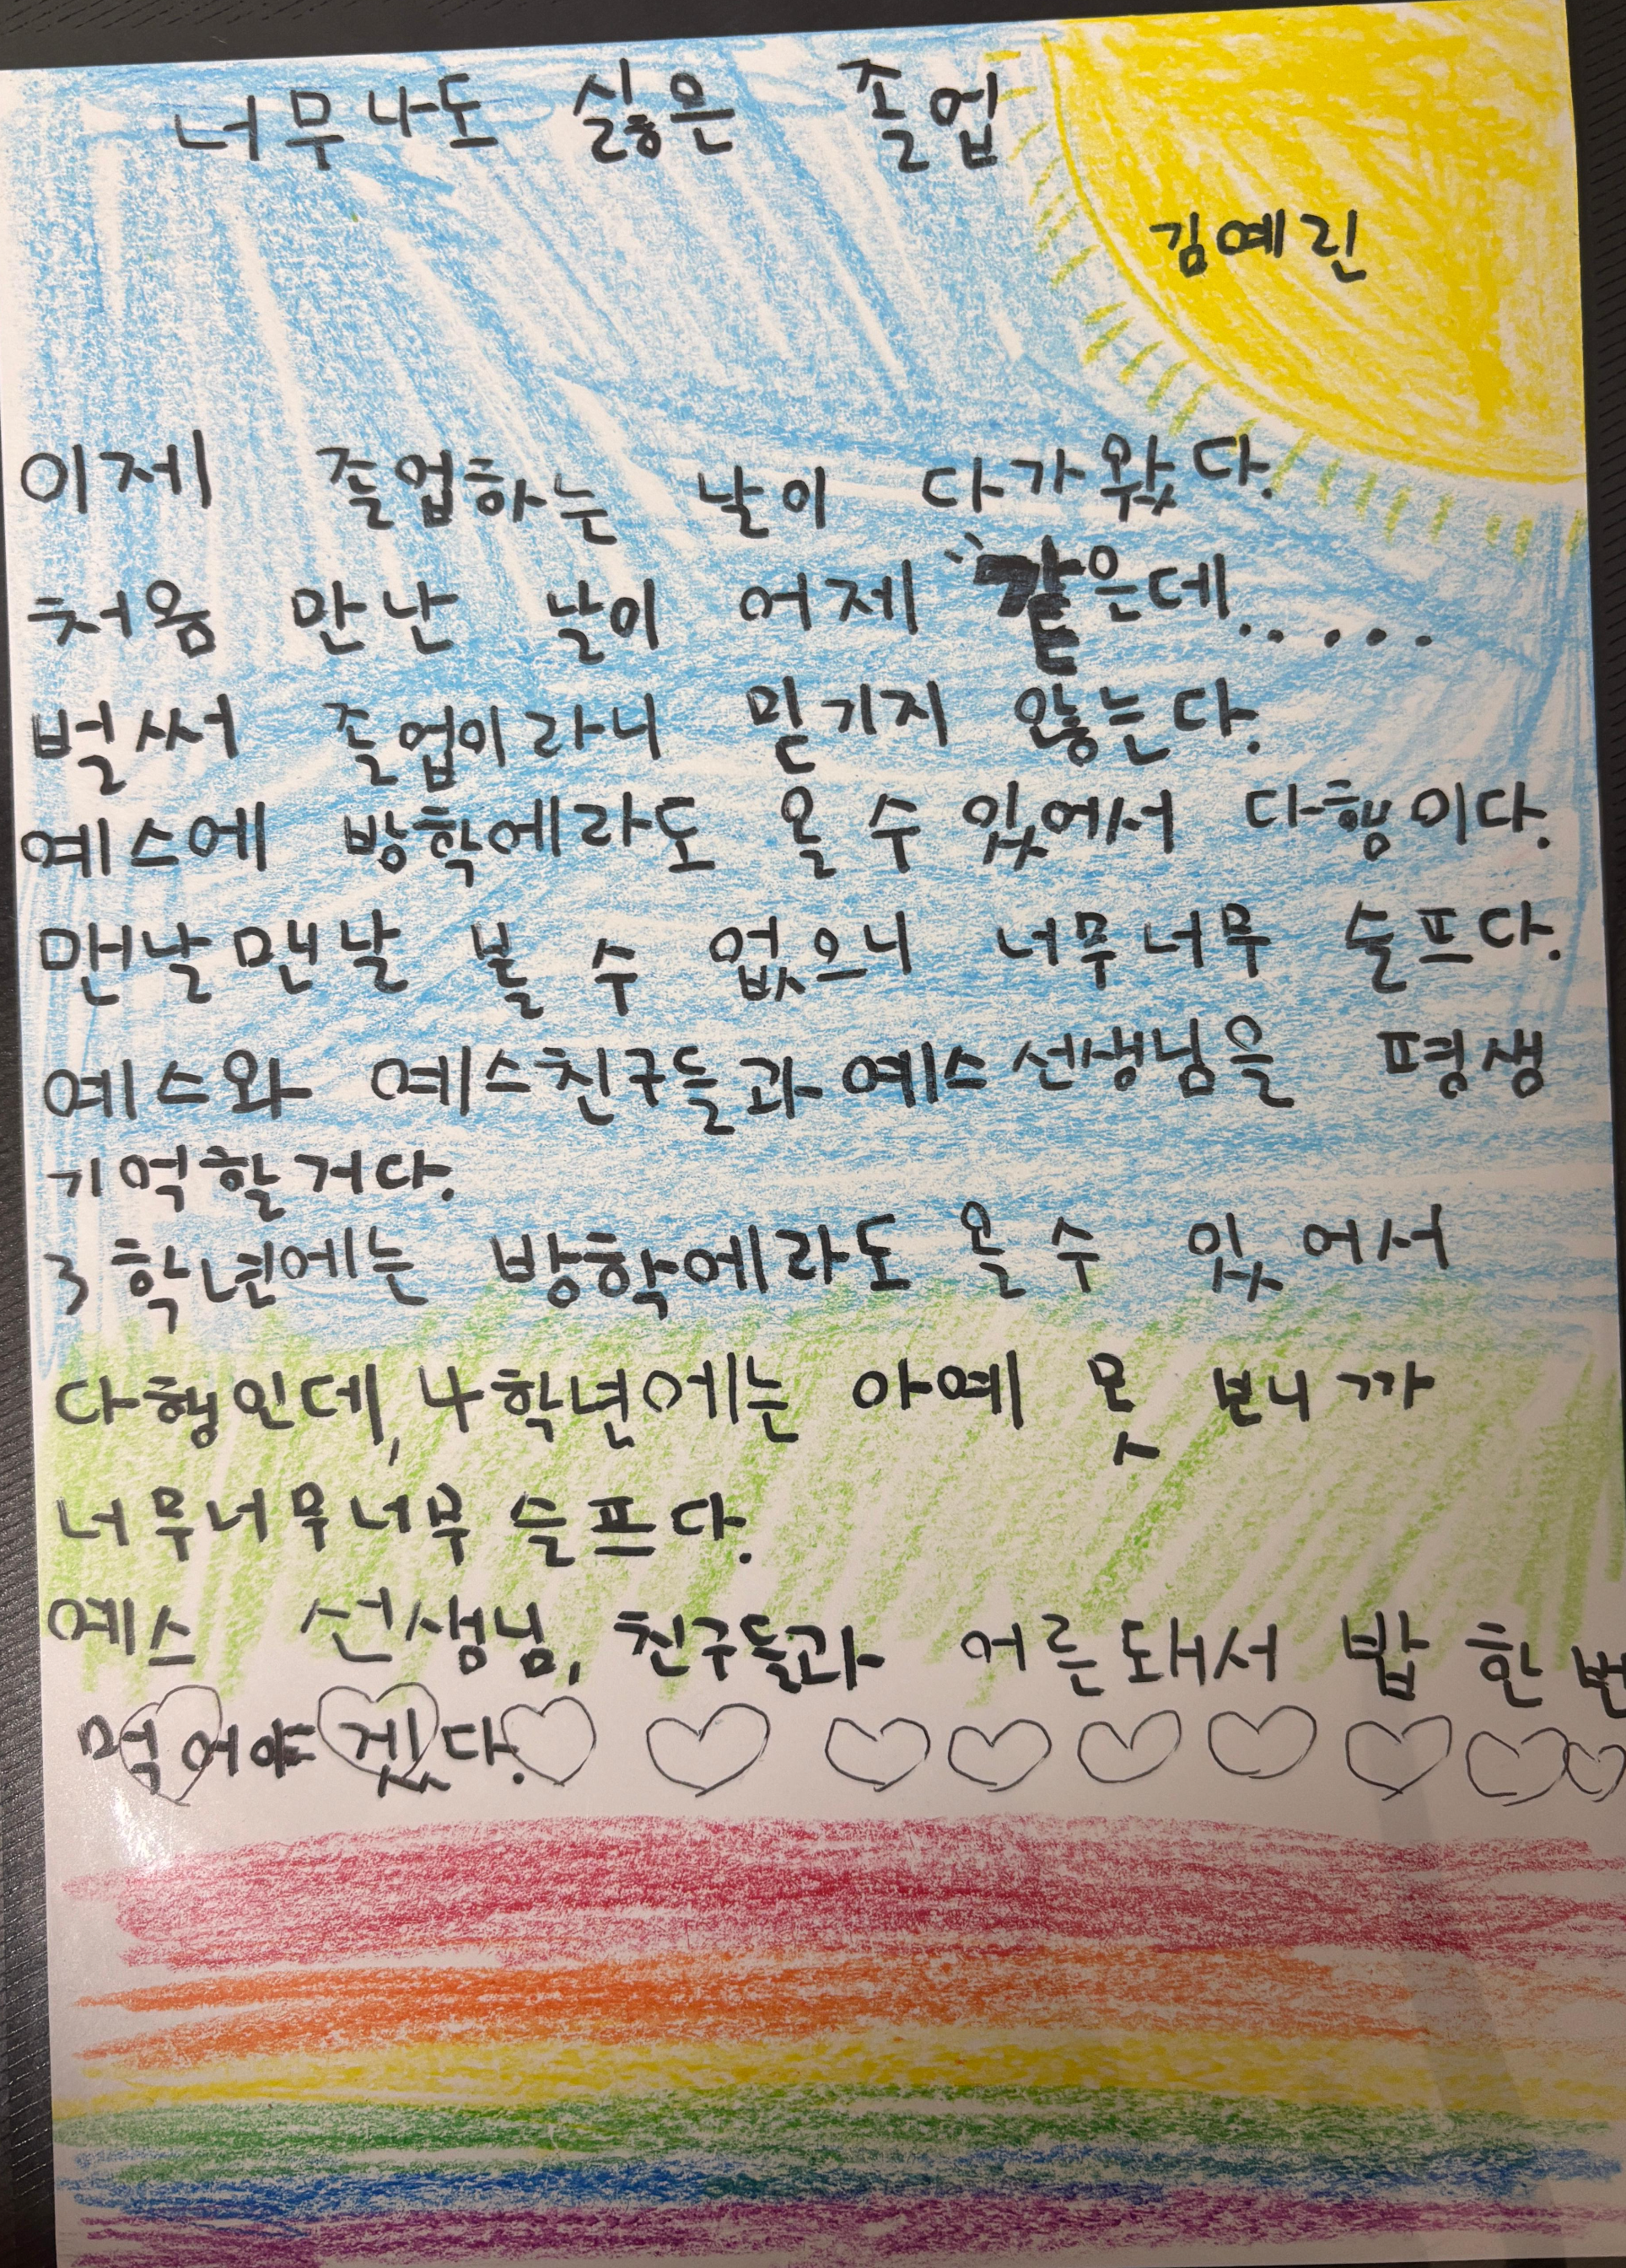 너무나도 싫은 졸업
김예린
이제 졸업하는 날이 다가왔다.
처음 만난 날이 어제 같은데.....
벌써 졸업이라니 믿기지 않는다.
예스에 방학에라도 올 수 있에서 다행이다.
맨날맨날 볼 수 없으니 너무너무 슬프다.
예스와 예스친구들과 예스선생님을 평생
기억할거다.
3학년에는 방학에라도 올 수 있어서
다행인데, 4학년에는 아예 못 보니까
너무너무너무 슬프다.
예스 선생님, 친구들과 어른돼서 밥 한번
먹어야겠다.